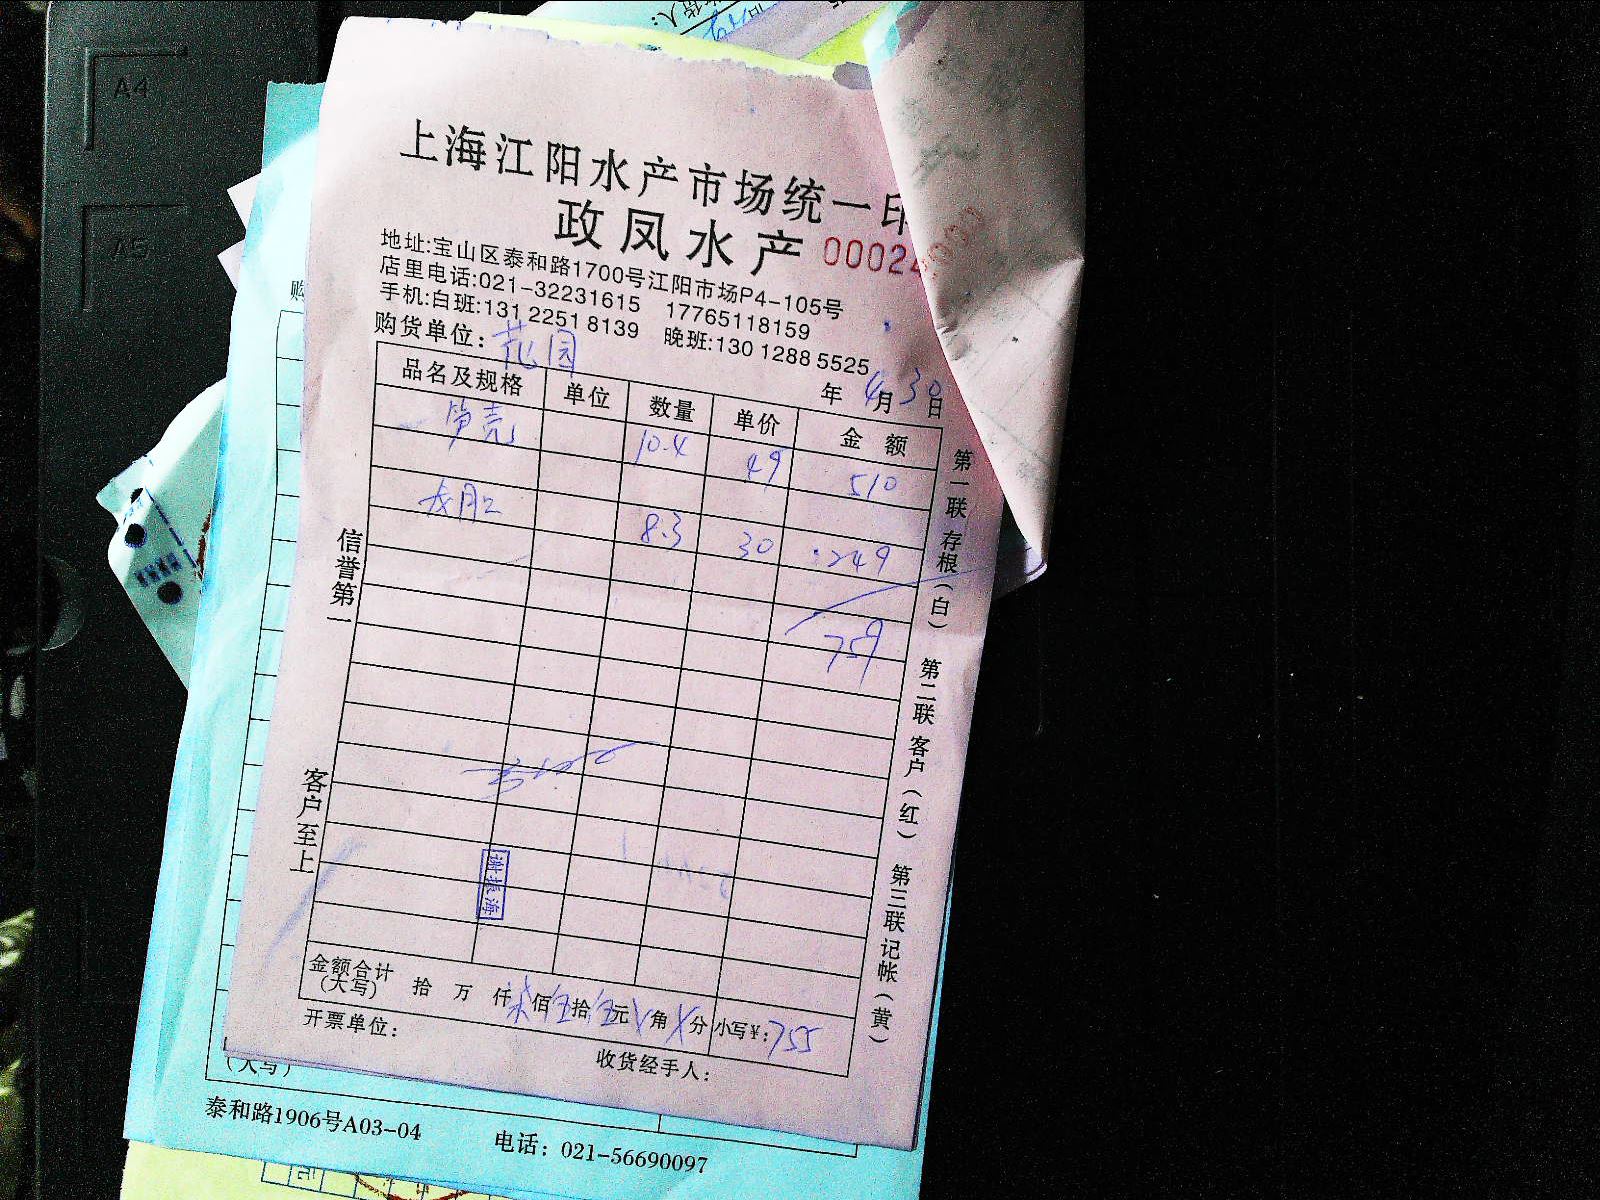 A4
A5
上海江阳水产市场统一印
政凤水产 00024
地址:宝山区泰和路1700号江阳市场P4-105号
店里电话:021-32231615 17765118159
手机:白班:131 2251 8139 晚班:130 1288 5525
购货单位: 花园
年 4月30日
品名及规格 单位 数量 单价 金额
笋壳 10.4 49 510
8.3 30 249
759
信誉第一
客户至上
第一联 存根(白) 第二联 客户(红) 第三联 记帐(黄)
谢振海
金额合计
(大写) 拾 万 仟 柒佰伍拾伍元 角 分 小写¥: 755
开票单位:
收货经手人:
(大写)
泰和路1906号A03-04 电话: 021-56690097